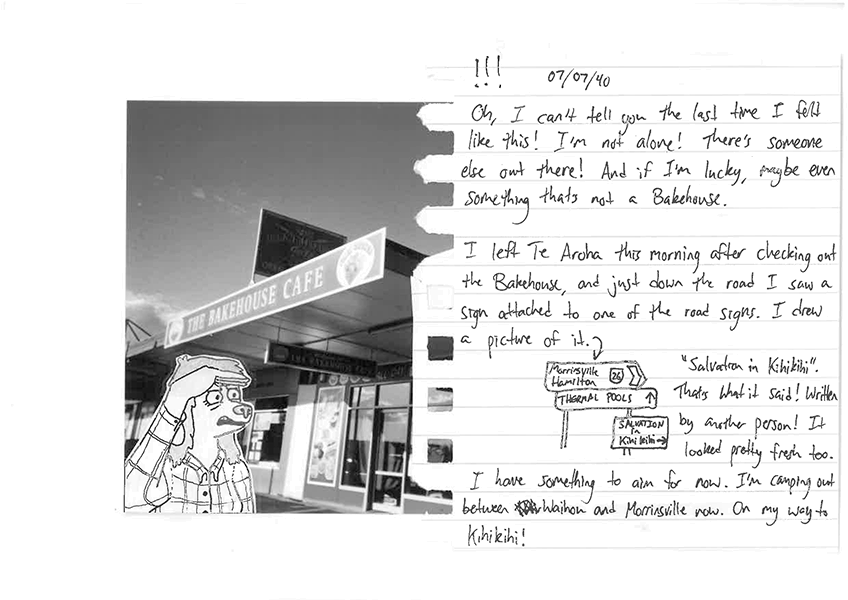 !!!
07/07/40
Oh, I can't tell you the last time I felt
like this! I'm not alone! There's someone
else out there! And if I'm lucky, maybe even
something thats not a Bakehouse.
I left Te Aroha this morning after checking out
the Bakehouse, and just down the road I saw a
sign attached to one of the road signs. I drew
a picture of it.
Morrinsville
Hamilton
26
THERMAL POOLS
SALVATION
in
Kihikihi
"Salvation in Kihikihi".
Thats what it said! Written
by another person! It
looked pretty fresh too.
I have something to aim for now. I'm camping out
between Waihou and Morrinsville now. On my way to
Kihikihi!
THE BAKEHOUSE CAFE
THE BAKEHOUSE CAFE